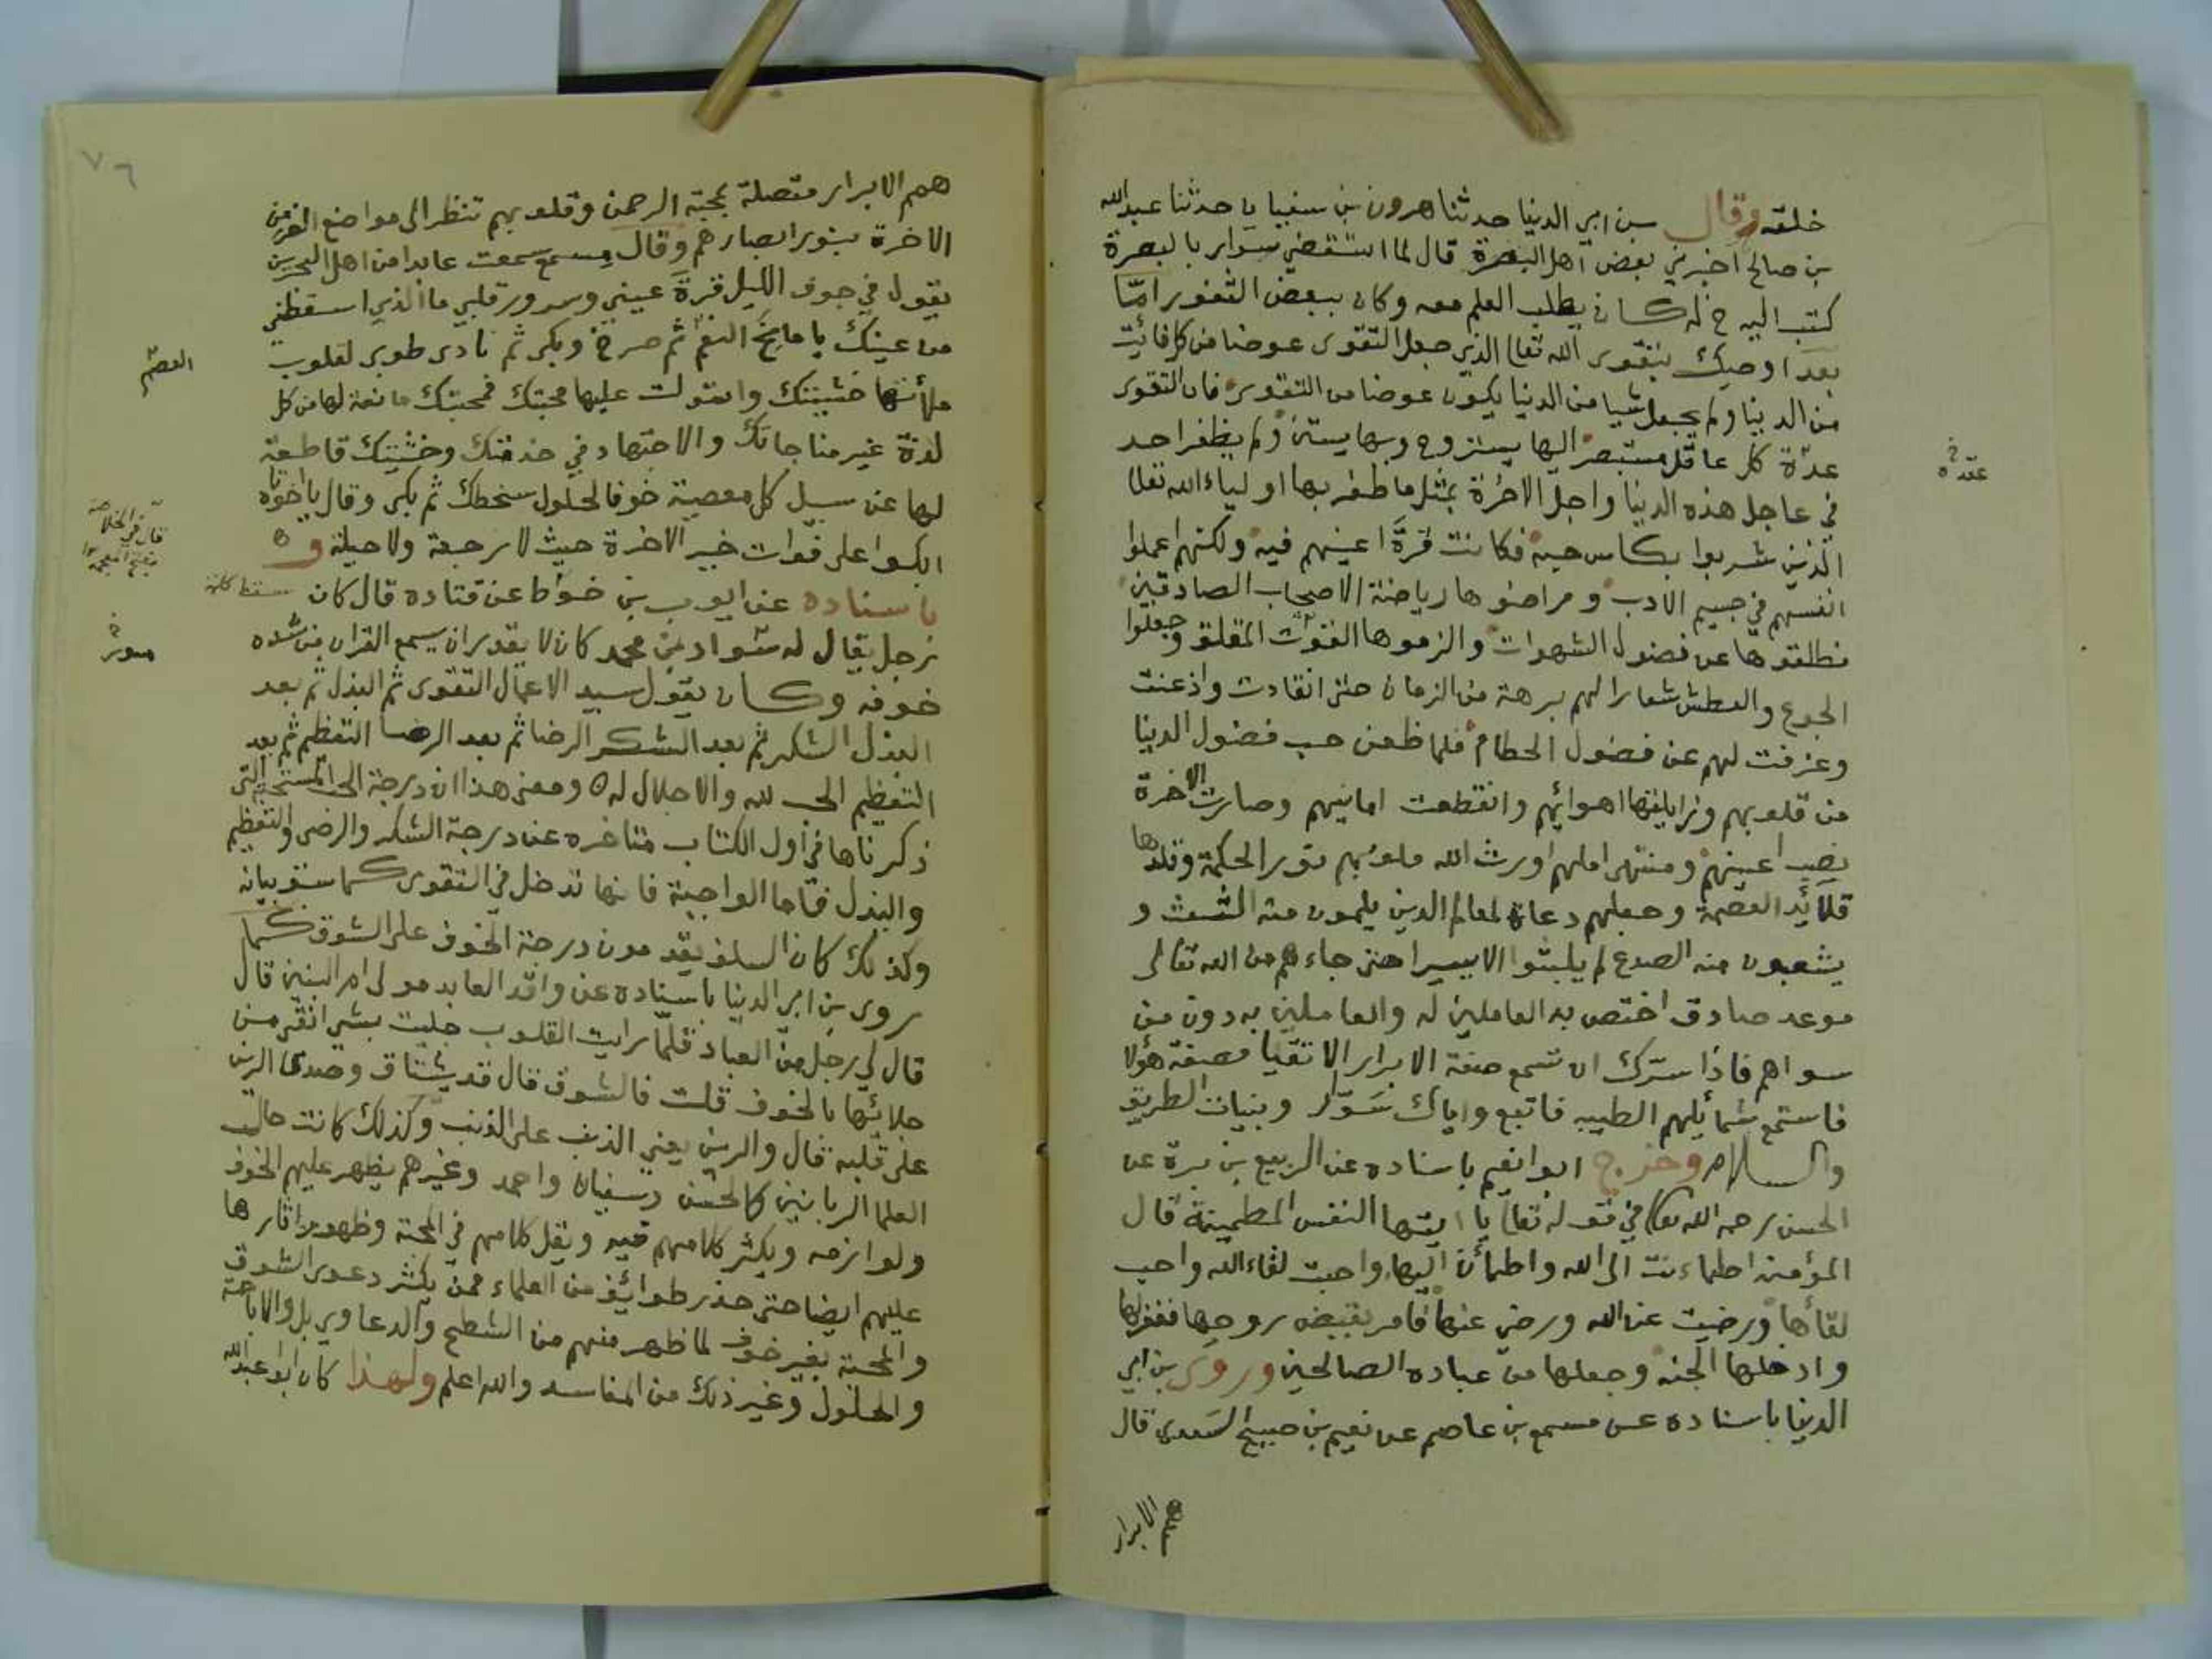 خلقه وقال بن ابي الدنيا حدثنا هرون بن سفيان حدثنا عبدالله
بن صالح اخبرني بعض اهل البصرة قال لما استقضي سوار بالبصرة
كتب اليه اخ له كان يطلب العلم معه وكان ببعض الثغور اما
بعد اوصيك بتقوى الله تعالى الذي جعل التقوى عوضا من كل فائت
من الدنيا ولم يجعل شيا من الدنيا يكون عوضا من التقوى فان التقوى
عدة كل عاقل مستبصر اليها يستروح وبها يستن ولم يظفر احد
في عاجل هذه الدنيا واجل الاخرة بمثل ما ظفر بها اولياء الله تعالى
الذين شربوا بكاس حبه فكانت قرة اعينهم فيه ولكنهم اعملوا
انفسهم في جسيم الادب وراضوها رياضة الاصحاب الصادقين
فطلقوها عن فضول الشهوات والزموها القوت المقلق وجعلوا
الجوع والعطش شعارا لهم برهة من الزمان حتى انقادت واذعنت
وعزفت لهم عن فضول الحطام فلما ظعن حب فضول الدنيا
من قلوبهم وزايلتها اهوائهم وانقطعت امانيهم وصارت الاخرة
نصب اعينهم ومنتهى املهم اورث الله قلوبهم نور الحكمة وقلدها
قلائد العصمة وجعلهم دعاة لمعالم الدين يلمون منه الشعث و
يشعبون منه الصدع لم يلبثوا الا يسيرا حتى جاءهم من الله تعالى
موعد صادق اختص به العاملين له والعاملين به دون من
سواهم فاذا سرك ان تسمع صفة الابرار الاتقيا فصفة هؤلا
فاستمع شمائلهم الطيبه فاتبع واياك سوار وبنيات الطريق
والسلام وخرج ابوا نعيم باسناده عن الربيع بن برة عن
الحسن رحمه الله تعالى في قوله تعالى يا ايتها النفس المطمينة قال
المؤمنة اطماءنت الى الله واطمأن اليها واحبت لقاء الله واحب
لقأها ورضيت عن الله ورضي عنها فامر بقبض روحها فغفر لها
وادخلها الجنه وجعلها من عباده الصالحين وروى بن ابي
الدنيا باسناده عن مسمع بن عاصم عن نعيم بن صبيح السعدي قال
همم الابرار
عقده
همم الابرار متصلة بمحبة الرحمن وقلوبهم تنظر الى مواضع العز من
الاخرة بنور ابصارهم وقال مسمع سمعت عابدا من اهل البحرين
يقول في جوف الليل قرة عيني وسرور قلبي ما الذي اسقطني
من عينك يا مانح النعم ثم صرخ وبكى ثم نادى طوبى لقلوب
ملأتها خشيتك واستولت عليها محبتك فمحبتك مانعة لها من كل
لذة غير مناجاتك والاجتهاد في خدمتك وخشيتك قاطعة
لها عن سبيل كل معصية خوفا لحلول سخطك ثم بكى وقال يا اخوتاه
ابكوا على فوات خير الاخرة حيث لا رجعة ولا حيلة و
باسناده عن ايوب بن خوط عن قتاده قال كان
رجل يقال له شواد بن محمد كان لا يقدر ان يسمع القران من شده
خوفه وكان يقول سيد الاعمال التقوى ثم البذل ثم بعد
البذل الشكر ثم بعد الشكر الرضا ثم بعد الرضا التعظيم ثم بعد
التعظيم الحب لله والاجلال له ومعنى هذا ان درجة الحب المستحبة التي
ذكرناها في اول الكتاب متاخره عن درجة الشكر والرضى والتعظيم
والبذل فاما الواجبة فانها تدخل في التقوى كما سبق بيانه
وكذلك كان السلف يقدمون درجة الخوف على الشوق كما
روى بن ابي الدنيا باسناده عن وافد العابد مولى ام البنين قال
قال لي رجل من العباد قلما رايت القلوب جليت بشي انقى من
جلائها بالخوف قلت فالشوق قال قد يشتاق وصدى الرين
على قلبه قال والرين يعني الذنب على الذنب وكذلك كانت حال
العلما الربانيين كالحسن وسفيان واحمد وغيرهم يظهر عليهم الخوف
ولوازمه ويكثر كلامهم فيه ويقل كلامهم في المحبة وظهور اثارها
عليهم ايضا حتى حذر طوائف من العلماء ممن يكثر دعوى الشوق
والمحبة بغير خوف لما ظهر منهم من الشطح والدعاوي بل والاباحة
والحلول وغير ذلك من المفاسد والله اعلم ولهذا كان ابو عبدالله
٧٦
قال في الخلاصة